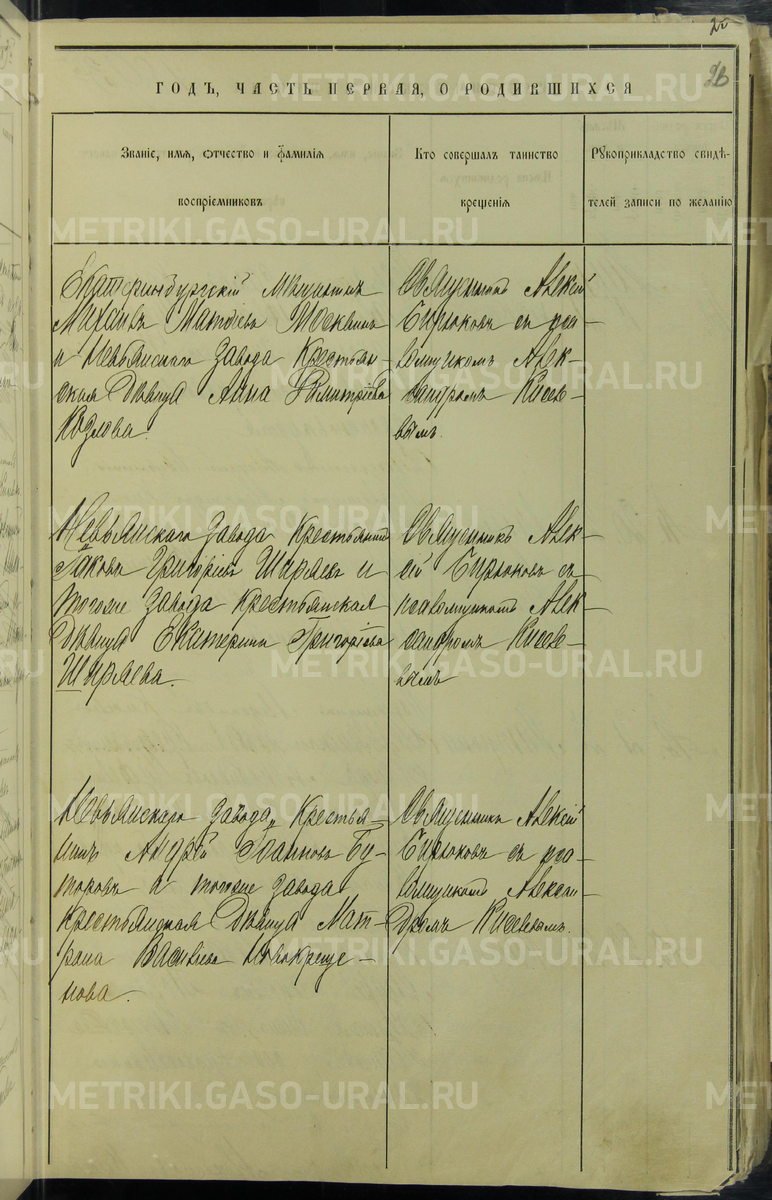 25
26
ГОДЪ, ЧАСТЬ ПЕРВАЯ, О РОДИВШИХСЯ
Званіе, имя, отчество и фамилія
воспріемниковъ
Кто совершалъ таинство
крещенія
Рукоприкладство свидѣ-
телей записи по желанію
Екатеринбургскій мѣщанинъ
Михаилъ Матѳіевъ Москвинъ
и Невьянскаго завода крестьян-
ская дѣвица Анна Димитріева
Козлова.
Священникъ Алексій
Бирюковъ съ пса-
ломщикомъ Алек-
сандромъ Киселе-
вымъ.
Невьянскаго завода крестьянинъ
Іаковъ Григоріевъ Ширяевъ и
тогоже завода крестьянская
дѣвица Екатерина Григоріева
Ширяева.
Священникъ Алек-
сій Бирюковъ съ
псаломщикомъ Алек-
сандромъ Киселе-
вымъ
Невьянскаго завода, крестья-
нинъ Андрей Іоанновъ Бу-
торовъ и тогоже завода
крестьянская дѣвица Мат-
рона Василіева Новокреще-
нова.
Священникъ Алексій
Бирюковъ съ пса-
ломщикомъ Алексан-
дромъ Киселевымъ.
METRIKI.GASO-URAL.RU